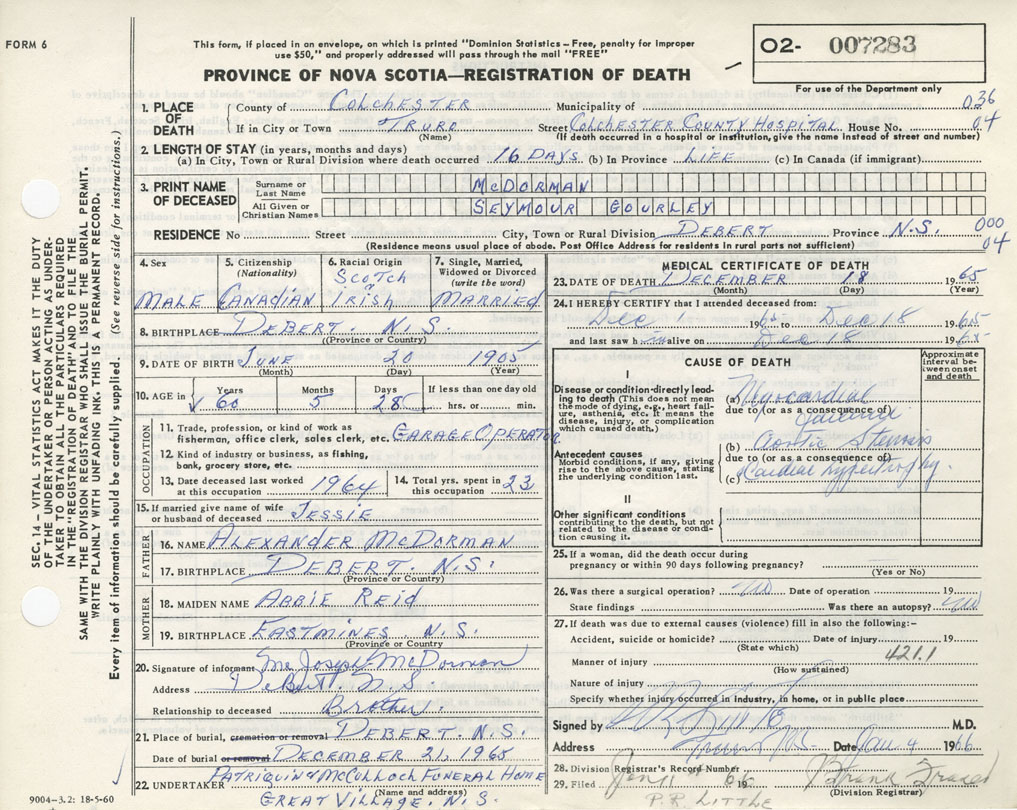 FORM 6
This form, if placed in an envelope, on which is printed "Dominion Statistics – Free, penalty for improper
use $50," and properly addressed will pass through the mail "FREE"
O2- 007283
PROVINCE OF NOVA SCOTIA—REGISTRATION OF DEATH
For use of the Department only
1. PLACE OF DEATH
County of COLCHESTER Municipality of 036
If in City or Town TRURO Street COLCHESTER COUNTY HOSPITAL House No. 04
(Name) (If death occurred in a hospital or institution, give the name instead of street and number)
2. LENGTH OF STAY (in years, months and days)
(a) In City, Town or Rural Division where death occurred 16 DAYS (b) In Province LIFE (c) In Canada (if immigrant)
3. PRINT NAME OF DECEASED
Surname or Last Name MCDORMAN
All Given or Christian Names SEYMOUR GOURLEY
RESIDENCE No Street City, Town or Rural Division DEBERT Province N.S. 000
(Residence means usual place of abode. Post Office Address for residents in rural parts not sufficient) 04
4. Sex
MALE
5. Citizenship
(Nationality)
CANADIAN
6. Racial Origin
Scotch
Irish
7. Single, Married,
Widowed or Divorced
(write the word)
MARRIED
8. BIRTHPLACE DEBERT. N.S.
(Province or Country)
9. DATE OF BIRTH JUNE 20 1905
(Month) (Day) (Year)
10. AGE in
Years 60
Months 5
Days 28
If less than one day old
hrs. or min.
OCCUPATION
11. Trade, profession, or kind of work as
fisherman, office clerk, sales clerk, etc. GARAGE OPERATOR
12. Kind of industry or business, as fishing,
bank, grocery store, etc.
13. Date deceased last worked
at this occupation 1964
14. Total yrs. spent in
this occupation 23
15. If married give name of wife
or husband of deceased JESSIE
FATHER
16. NAME ALEXANDER MCDORMAN
17. BIRTHPLACE DEBERT. N.S.
(Province or Country)
MOTHER
18. MAIDEN NAME ABBIE REID
19. BIRTHPLACE EASTMINES N.S.
(Province or Country)
20. Signature of informant Joseph McDorman
Address Debert. N.S.
Relationship to deceased Brother.
21. Place of burial, cremation or removal DEBERT. N.S.
Date of burial or removal DECEMBER 21, 1965
22. UNDERTAKER PATRIQUIN & MCCULLOCH FUNERAL HOME
(Name and address)
GREAT VILLAGE, N.S.
MEDICAL CERTIFICATE OF DEATH
23. DATE OF DEATH DECEMBER 18 1965
(Month) (Day) (Year)
24. I HEREBY CERTIFY that I attended deceased from:
Dec 1 196 to Dec 18 1965
and last saw h alive on Dec 18 1965
CAUSE OF DEATH
Approximate interval between onset and death
I
Disease or condition directly leading to death (This does not mean the mode of dying, e.g., heart failure, asthenia, etc. It means the disease, injury, or complication which caused death.)
(a) Myocardial
due to (or as a consequence of)
failure
Antecedent causes
Morbid conditions, if any, giving rise to the above cause, stating the underlying condition last.
(b) Aortic Stenosis
due to (or as a consequence of)
(c) Cardiac hypertrophy.
II
Other significant conditions
contributing to the death, but not related to the disease or condition causing it.
25. If a woman, did the death occur during
pregnancy or within 90 days following pregnancy?
(Yes or No)
26. Was there a surgical operation? no Date of operation 19
State findings Was there an autopsy? no
27. If death was due to external causes (violence) fill in also the following:–
Accident, suicide or homicide? Date of injury 19
(State which) 421.1
Manner of injury
(How sustained)
Nature of injury
Specify whether injury occurred in industry, in home, or in public place
Signed by M.D.
Address Truro N.S. Date Jan 4 1966
28. Division Registrar's Record Number
29. Filed Jan 11 66 19
(Division Registrar)
P.R. LITTLE
SEC. 14 – VITAL STATISTICS ACT MAKES IT THE DUTY
OF THE UNDERTAKER OR PERSON ACTING AS UNDER-
TAKER TO OBTAIN ALL THE PARTICULARS REQUIRED
IN THE "REGISTRATION OF DEATH" AND TO FILE THE
SAME WITH THE DIVISION REGISTRAR WHO SHALL ISSUE THE BURIAL PERMIT.
WRITE PLAINLY WITH UNFADING INK. THIS IS A PERMANENT RECORD.
Every item of information should be carefully supplied. (See reverse side for instructions.)
9004–3.2: 18-5-60